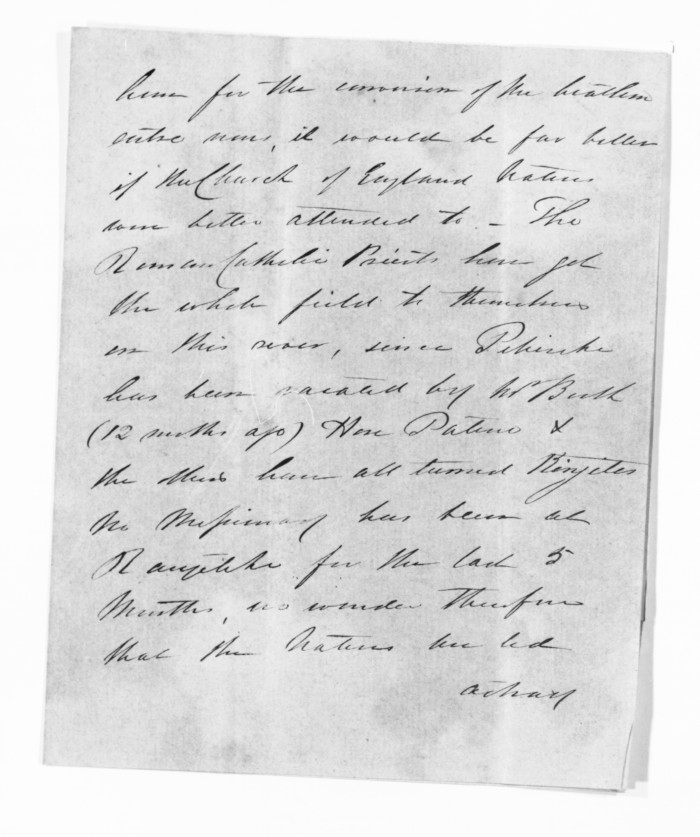 here for the conversion of the heathen
entre nous, it would be far better
if the Church of England Natives
were better attended to - The
Roman Catholic Priests have got
the whole field to themselves
on this river, since
has been vacated by Mr
(12 months ago) Hone Patene &
the others have all turned Kingites
No Missionary has been at
Rangitike for the last 5
Months, no wonder therefore
that the Natives are led
astray